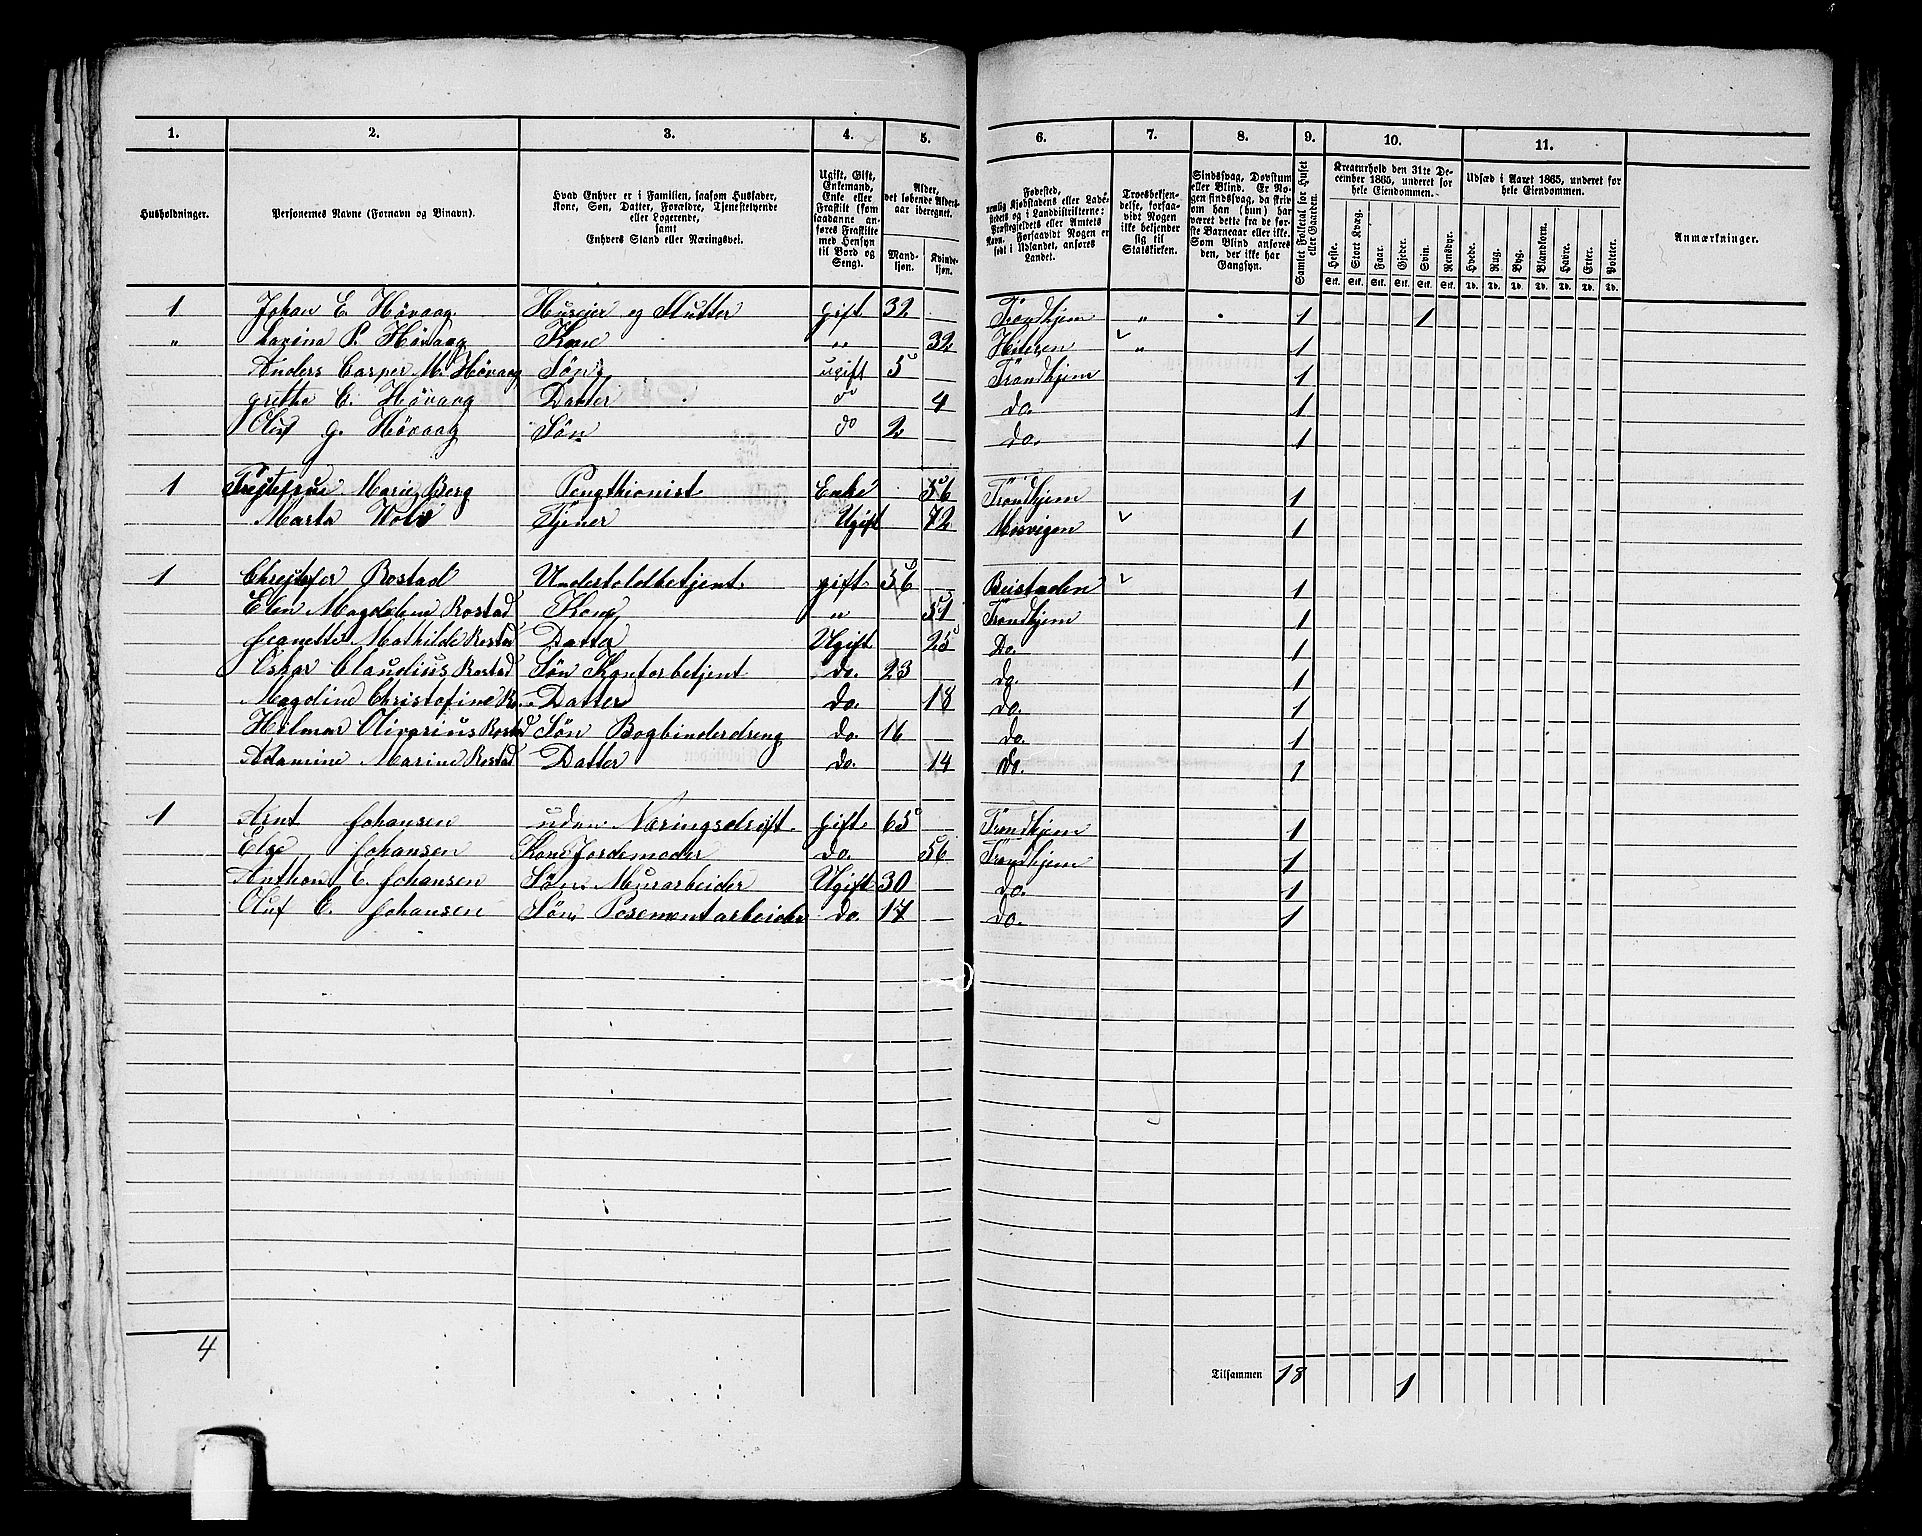 1. 2. 3. 4. 5. 6. 7. 8. 9. 10. 11.
Husholdninger. Personernes Navne (Fornavn og Binavn). Hvad Enhver er i Familien, saasom Husfader, Kone, Søn, Datter, Forældre, Tjenestetyende eller Logerende, samt Enhvers Stand eller Næringsvei. Ugift, Gift, Enkemand, Enke eller Fraskilt (som saadanne anføres Fraskilte med Hensyn til Bord og Seng). Alder, det løbende Alders-aar iberegnet. Mandkjøn. Kvindekjøn.
Fødested, nemlig Kjøbstadens eller Ladestedets og i Landdistrikterne: Præstegjeldets eller Amtets Navn. Forsaavidt Nogen er født i Udlandet, anføres Landet. Troesbekjendelse, forsaavidt Nogen ikke bekjender sig til Statskirken. Sindssvag, Døvstum eller Blind. Er Nogen sindssvag, da skrives om han (hun) har været dette fra de første Barneaar eller ikke. Som Blind anføres den, der ikke har Gangsyn. Samlet Folketal for Huset eller Gaarden. Kreaturhold den 31te December 1865, underet for hele Eiendommen. Udsæd i Aaret 1865, underet for hele Eiendommen. Anmærkninger.
Heste. Stort Kvæg. Faar. Gjeder. Svin. Rensdyr. Hvede. Rug. Byg. Blandkorn. Havre. Erter. Poteter.
Stk. Stk. Stk. Stk. Stk. Stk. Td. Td. Td. Td. Td. Td. Td.
1 Johan E. Hövaag Huseier og Slutter gift 32 Trondhjem " 1 1
" Lavina P. Hövaag Kone " 32 Hitteren " 1
Anders Casper M. Hövaag Søn ugift 5 Trondhjem 1
grethe E. Hövaag Datter do 4 do. 1
Oluf G. Hövaag Søn do 2 do. 1
1 Marie Berg Pengthionist Enke 56 Trondhjem 1
Marta Tjener Ugift 72 Mosvigen 1
1 Christofer Rostad Undertoldbetjent gift 56 Beistaden 1
Elen Magdalene Rostad Kone " 51 Trondhjem 1
Jeanette Mathilde Rostad Datter Ugift 25 Do. 1
Oskar Claudius Rostad Søn Kontorbetjent do. 23 do. 1
Magdline Christofine R. Datter do. 18 do. 1
Hilmar Olivarius Rostad Søn Bogbinderdreng do. 16 do. 1
Adamine Marine Rostad Datter do. 14 do. 1
1 Arnt Johansen uden Næringsdrift gift 65 Trondhjem 1
Else Johansen Kone Jordemoder do. 56 Trondhjem 1
Anthon E. Johansen Søn. Murarbeider Ugift 30 do. 1
Oluf E. Johansen Søn, Posementarbeider do. 17 do. 1
4 Tilsammen 18 1